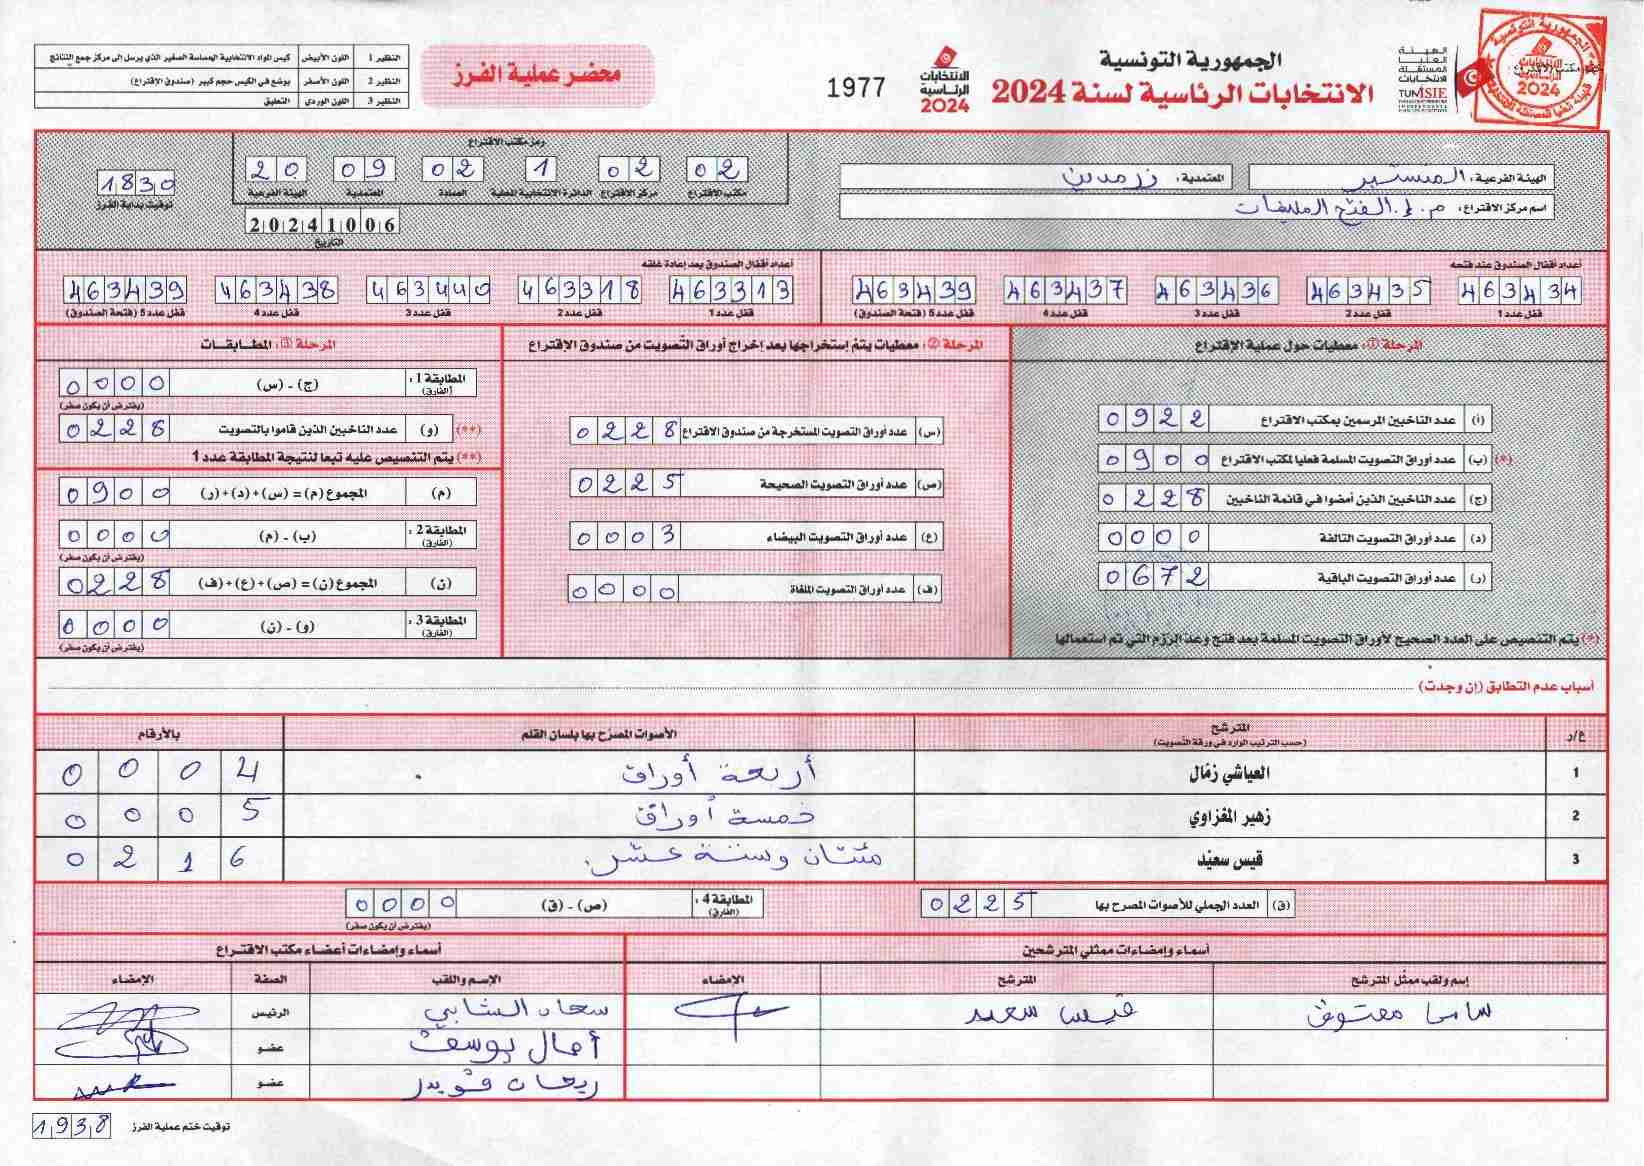 الجمهورية التونسية
الانتخابات الرئاسية لسنة 2024
الهيئة العليا المستقلة للانتخابات
TUNISIE
الانتخابات الرئاسية 2024
1977
محضر عملية الفرز
النظير 1 اللون الأبيض كيس المواد الانتخابية الحساسة الصغير الذي يرسل الى مركز جمع النتائج
النظير 2 اللون الأصفر يوضع في الكيس حجم كبير (صندوق الإقتراع)
النظير 3 اللون الوردي التعليق
الهيئة الفرعية: المنستير
المعتمدية: زرمدين
اسم مركز الاقتراع: م.إ. الفتح المليفات
رمز مكتب الاقتراع
02 مكتب الاقتراع
02 مركز الاقتراع
1 الدائرة الانتخابية المحلية
02 العمادة
09 المعتمدية
20 الهيئة الفرعية
20241006
التاريخ
1830
توقيت بداية الفرز
أعداد أقفال الصندوق عند فتحه
463434 463435 463436 463437 463439
قفل عدد 1 قفل عدد 2 قفل عدد 3 قفل عدد 4 قفل عدد 5 (فتحة الصندوق)
أعداد أقفال الصندوق بعد إعادة غلقه
463313 463318 463440 463438 463439
قفل عدد 1 قفل عدد 2 قفل عدد 3 قفل عدد 4 قفل عدد 5 (فتحة الصندوق)
المرحلة ①: معطيات حول عملية الإقتراع
(أ) عدد الناخبين المرسمين بمكتب الاقتراع 0922
(*) (ب) عدد أوراق التصويت المسلمة فعليا لمكتب الاقتراع 0900
(ج) عدد الناخبين الذين أمضوا في قائمة الناخبين 0228
(د) عدد أوراق التصويت التالفة 0000
(ر) عدد أوراق التصويت الباقية 0672
(*) يتم التنصيص على العدد الصحيح لأوراق التصويت المسلمة بعد فتح وعد الرزم التي تم استعمالها
المرحلة ②: معطيات يتم إستخراجها بعد إخراج أوراق التصويت من صندوق الإقتراع
(س) عدد أوراق التصويت المستخرجة من صندوق الاقتراع 0228
(ص) عدد أوراق التصويت الصحيحة 0225
(ع) عدد أوراق التصويت البيضاء 0003
(ف) عدد أوراق التصويت الملغاة 0000
المرحلة ③: المطابقات
المطابقة 1: (الفارق) (ج) - (س) 0000
(يفترض أن يكون صفر)
(**) (و) عدد الناخبين الذين قاموا بالتصويت 0228
(**) يتم التنصيص عليه تبعا لنتيجة المطابقة عدد 1
(م) المجموع (م) = (س) + (د) + (ر) 0900
المطابقة 2: (الفارق) (ب) - (م) 0000
(يفترض أن يكون صفر)
(ن) المجموع (ن) = (ص) + (ع) + (ف) 0228
المطابقة 3: (الفارق) (و) - (ن) 0000
(يفترض أن يكون صفر)
أسباب عدم التطابق (إن وجدت)
ع/د المترشح (حسب الترتيب الوارد في ورقة التصويت) الأصوات المصرح بها بلسان القلم بالأرقام
1 العياشي زمّال أربعة أوراق 0004
2 زهير المغزاوي خمسة أوراق 0005
3 قيس سعيّد مئتان وستة عشر 0216
(ق) العدد الجملي للأصوات المصرح بها 0225
المطابقة 4: (الفارق) (ص) - (ق) 0000
(يفترض أن يكون صفر)
أسماء وإمضاءات ممثلي المترشحين
إسم ولقب ممثّل المترشح المترشح الإمضاء
سامي معتوق قيس سعيد
أسماء وإمضاءات أعضاء مكتب الاقتراع
الإسم واللقب الصفة الإمضاء
سعاد الشابي الرئيس
أمال يوسف عضو
ريحان قويدر عضو
توقيت ختم عملية الفرز 1938